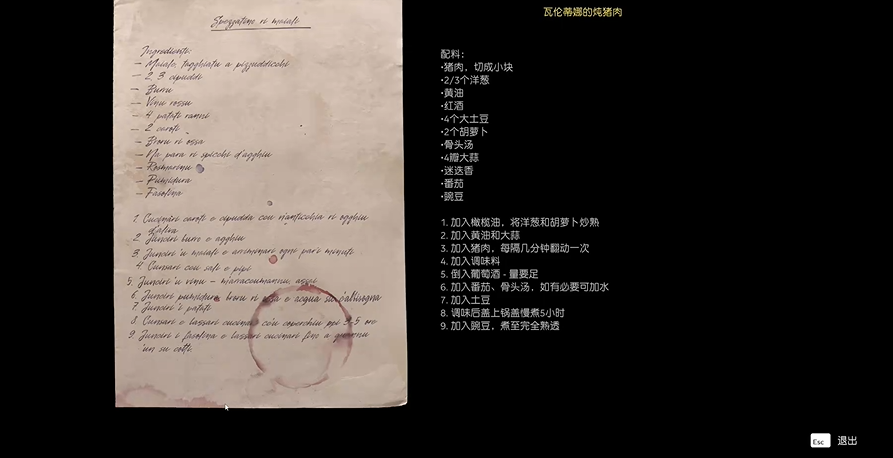 Spezzatino ri maiali
Ingredienti:
– Maiali, tagghiatu a pizzuddicchi
– 2, 3 cipuddi
– Burru
– Vinu russu
– 4 patati ranni
– 2 caroti
– Broru ri ossa
– Na para ri spicchi d'agghiu
– Rosmarinu
– Pumidura
– Fasolina
1. Cucinari caroti e cipudda cou n'anticchia ri ogghiu
d'aliva
2. Junciri burru e agghiu
3. Junciri u maiali e arriminari ogni par'i minuti
4. Cunsari cou sali e pipi
5. Junciri u vinu – assai
6. Junciri pumidura, broru ri ossa e acqua su c'abbisogna
7. Junciri i patati
8. Cunsari e lassari cucinari co'u cuperchiu ppi 3,5 ore
9. Junciri i fasolina e lassari cucinari finu a quannu
'un su cotti.
瓦伦蒂娜的炖猪肉
配料：
•猪肉，切成小块
•2/3个洋葱
•黄油
•红酒
•4个大土豆
•2个胡萝卜
•骨头汤
•4瓣大蒜
•迷迭香
•番茄
•豌豆
1. 加入橄榄油，将洋葱和胡萝卜炒熟
2. 加入黄油和大蒜
3. 加入猪肉，每隔几分钟翻动一次
4. 加入调味料
5. 倒入葡萄酒 - 量要足
6. 加入番茄、骨头汤，如有必要可加水
7. 加入土豆
8. 调味后盖上锅盖慢煮5小时
9. 加入豌豆，煮至完全熟透
Esc 退出